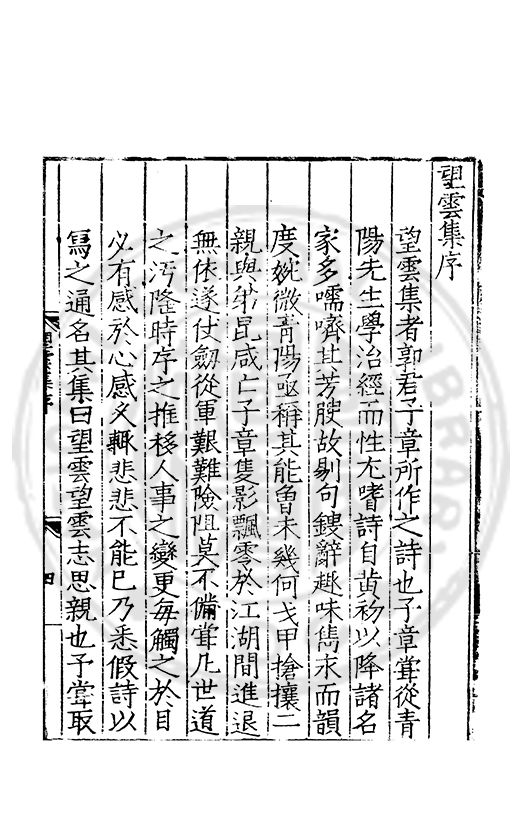 望雲集序
望雲集者郭君子章所作之詩也子章甞從青
陽先生學治經而性尤嗜詩自黄初以降諸名
家多嚅嚌其芳腴故剔句鏤辭趣味雋永而韻
度姚微青陽亟稱其能曾未幾何戈甲搶攘二
親與弟昆咸亡子章隻影飄零於江湖間進退
無依遂仗劒從軍艱難險阻莫不備甞凡世道
之汚隆時序之推移人事之變更每觸之於目
必有感於心感又輙悲悲不能已乃悉假詩以
寫之通名其集曰望雲望雲志思親也予甞取
四